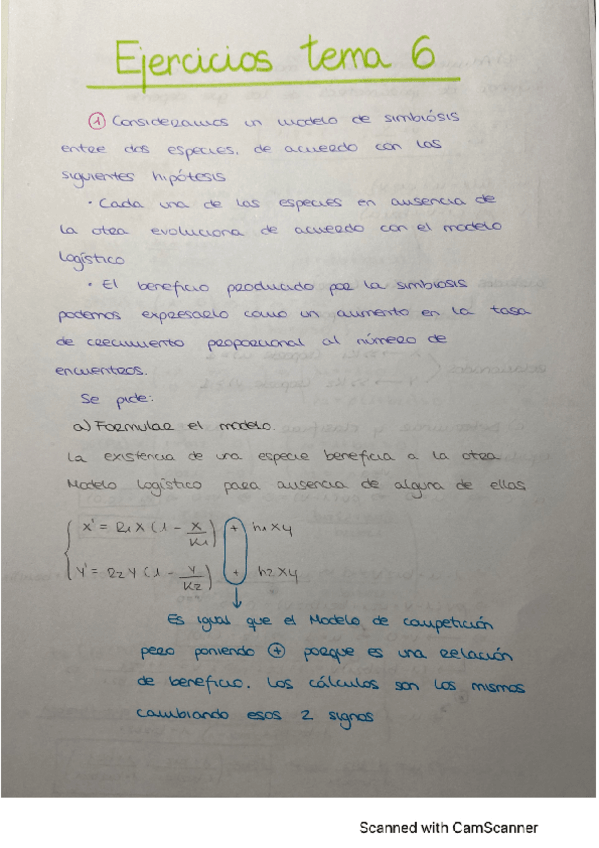 Ejercicios tema 6
① Consideramos un modelo de simbiósis
entre dos especies. de acuerdo con las
siguientes hipótesis
· Cada una de las especies en ausencia de
la otra evoluciona de acuerdo con el modelo
logístico
· El beneficio producido por la simbiosis
podemos expresarlo como un aumento en la tasa
de crecimiento proporcional al número de
encuentros.
Se pide:
a) Formular el modelo.
La existencia de una especie beneficia a la otra
Modelo logístico para ausencia de alguna de ellas
x' = R1 X (1 - X/K1) + h1 x y
y' = R2 Y (1 - Y/K2) + h2 x y
Es igual que el Modelo de competición
pero poniendo ⊕ porque es una relación
de beneficio. Los cálculos son los mismos
cambiando esos 2 signos
Scanned with CamScanner